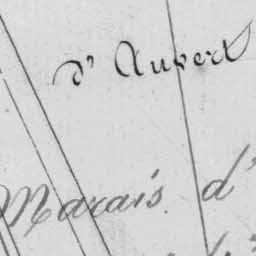 d' Aubert
Marais d'